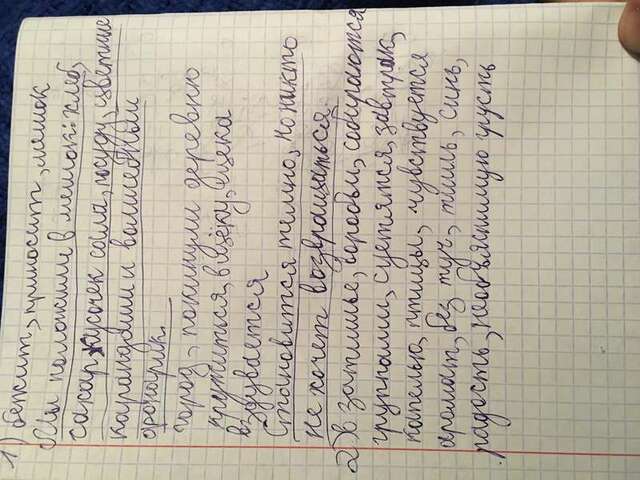 1) бежит, приносит, мешок
Мы положили в мешок: хлеб,
сахар, кусочек сала, посуду, цветные
карандаши и волшебный
фонарик.
город, покинули деревню
кружиться, в щёку, щека
вздувается
Становится темно, но никто
не хочет возвращаться.
2) в затишье, воробьи, собираются
группами, суетятся, завтрак,
капелью, птицы, чувствуется
аромат, без туч, тишь, синь,
радость, необъяснимую грусть